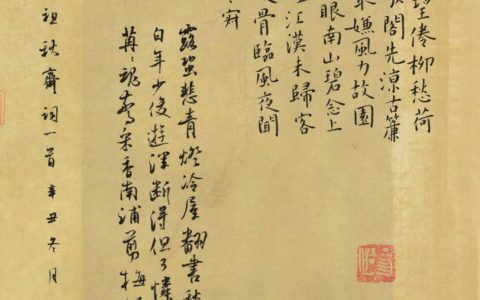 望倦柳愁荷
閣先涼古簾
最嫌風力故園
眼南山碧念上
江漢未歸客
骨臨風夜聞
寂
露蛩悲青燈冷屋翻書愁
白年少俊遊渾斷得但可憐
苒々魂驚采香南浦剪梅
祖秋霽詞一首辛丑冬月